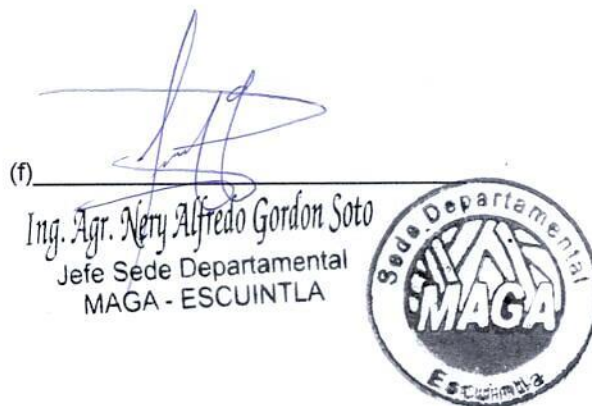 (f)
Ing. Agr. Nery Alfredo Gordon Soto
Jefe Sede Departamental
MAGA - ESCUINTLA
Sede Departamental
MAGA
Escuintla